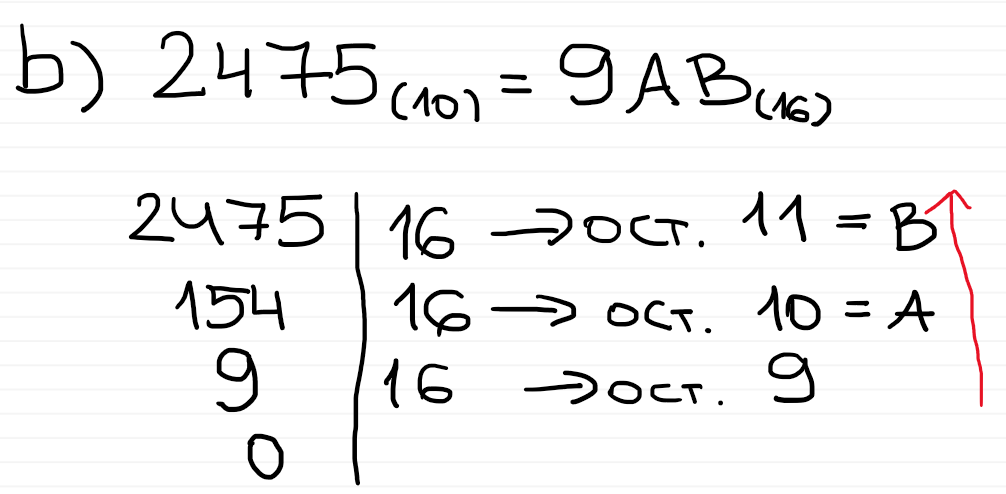 b) 2475(10) = 9AB(16)
2475 | 16 → ост. 11 = B
154 | 16 → ост. 10 = A
9 | 16 → ост. 9
0 |